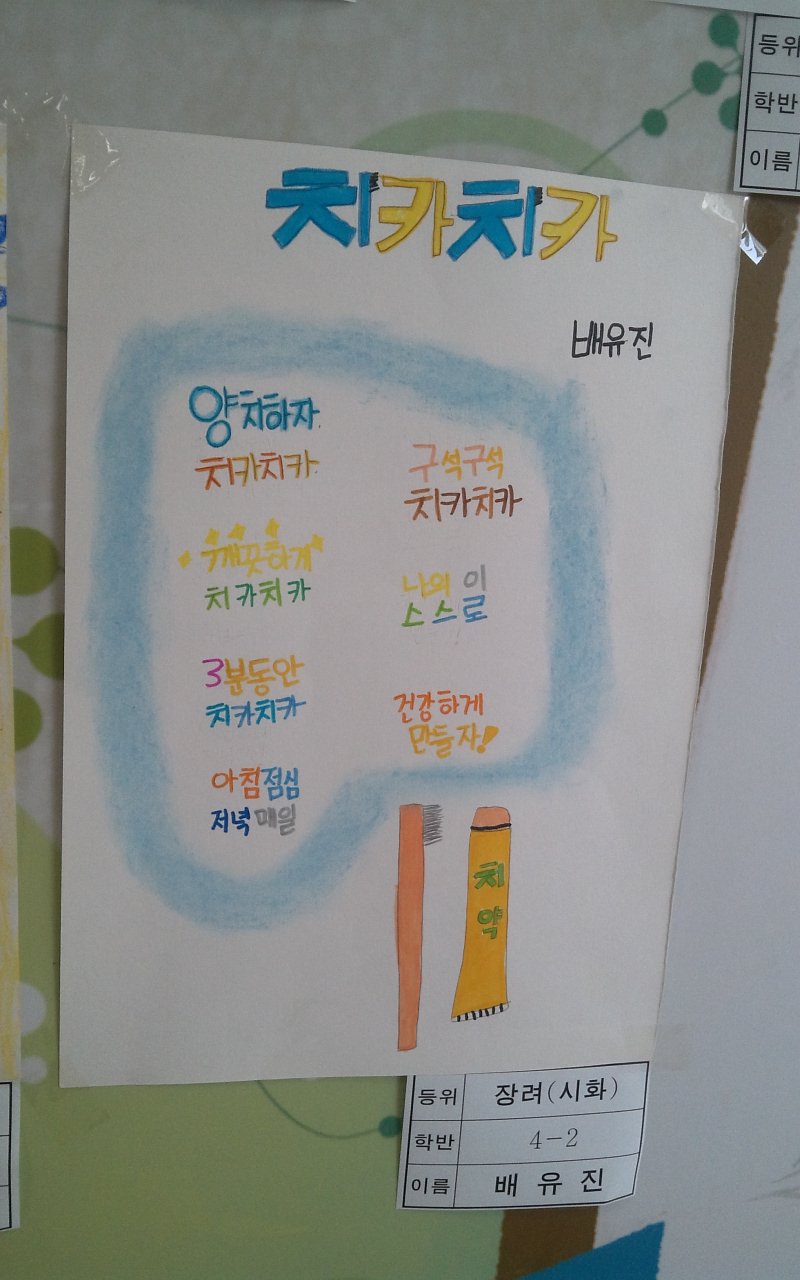 치카치카
배유진
양치하자
치카치카
깨끗하게
치카치카
3분동안
치카치카
아침점심
저녁매일
구석구석
치카치카
나의 이
스스로
건강하게
만들자!
치약
등위 장려(시화)
학반 4-2
이름 배유진
등위
학반
이름